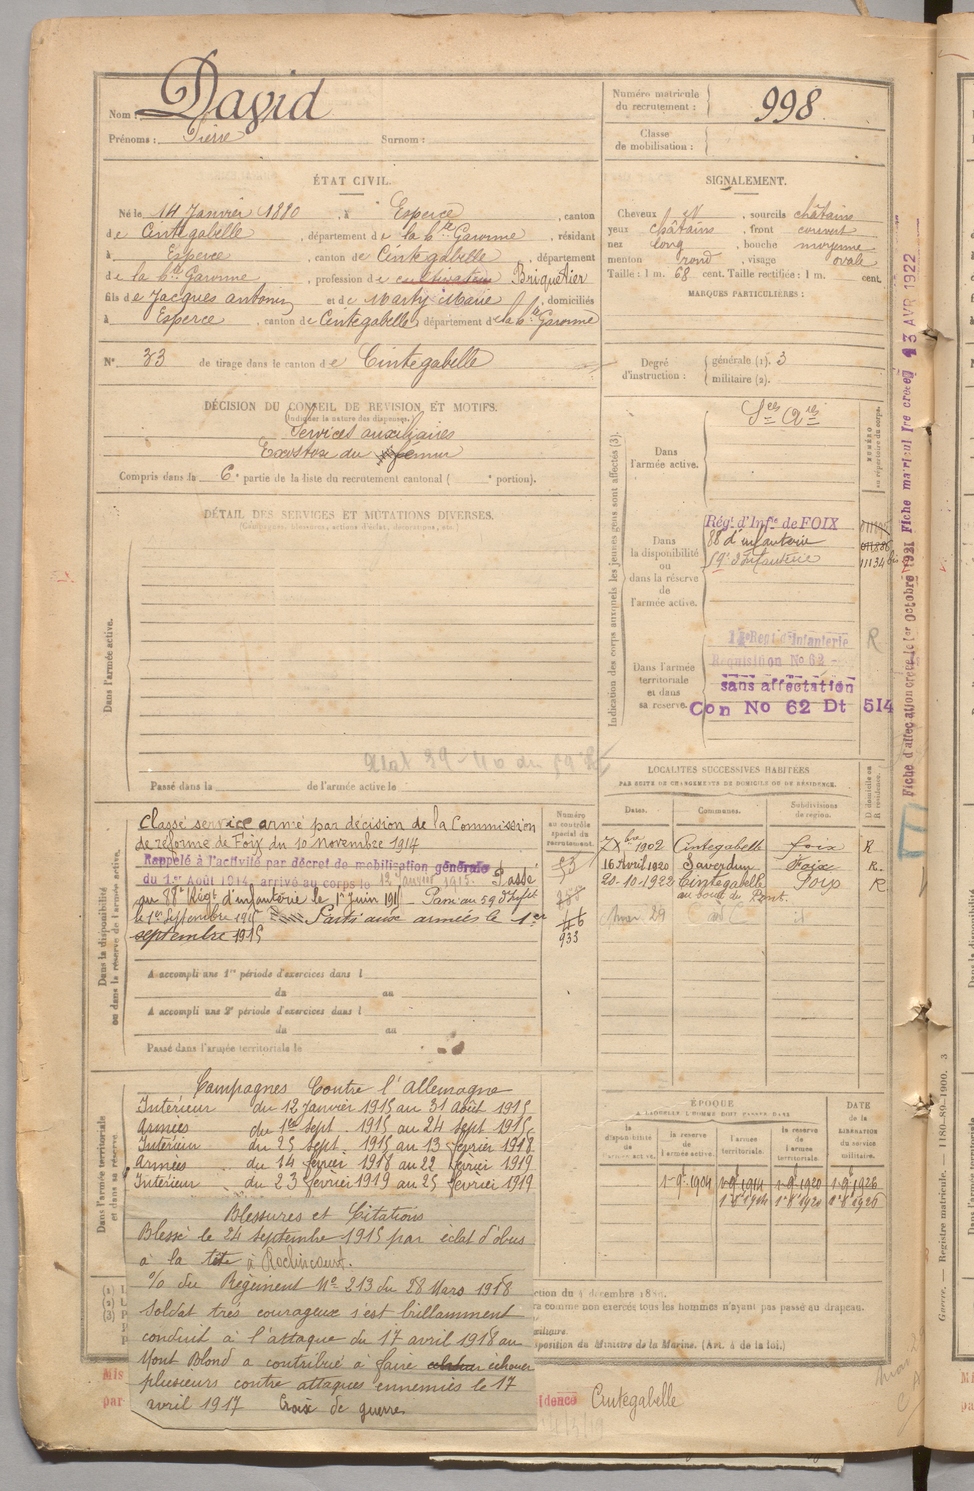 Nom : David
Prénoms : Pierre Surnom :
Numéro matricule du recrutement : 998
Classe de mobilisation :
ÉTAT CIVIL.
Né le 14 Janvier 1880, à Esperce, canton
de Cintegabelle, département de la hte Garonne, résidant
à Esperce, canton de Cintegabelle, département
de la hte Garonne, profession de cultivateur Briquetier
fils de Jacques antonin et de Marty Marie, domiciliés
à Esperce, canton de Cintegabelle, département de la hte Garonne
N° 33 de tirage dans le canton de Cintegabelle
SIGNALEMENT.
Cheveux, sourcils châtains
yeux châtains, front couvert
nez long, bouche moyenne
menton rond, visage ovale
Taille : 1 m. 68 cent. Taille rectifiée : 1 m. cent.
MARQUES PARTICULIÈRES :
Degré d'instruction : générale (1). 3
militaire (2).
DÉCISION DU CONSEIL DE REVISION ET MOTIFS.
(Indiquer la nature des dispenses.)
Services auxiliaires
Exostose du fémur
Compris dans la 6e partie de la liste du recrutement cantonal ( e portion).
DÉTAIL DES SERVICES ET MUTATIONS DIVERSES.
(Campagnes, blessures, actions d'éclat, décorations, etc.)
Dans l'armée active.
Passé dans la de l'armée active le
Indication des corps auxquels les jeunes gens sont affectés (3).
NUMÉRO au répertoire du corps.
Dans l'armée active.
Sces Ares
Dans la disponibilité ou dans la réserve de l'armée active.
Régt d'Infie de FOIX
88 d'infanterie
59e d'Infanterie 11134 bis
Dans l'armée territoriale et dans sa réserve.
Regt d'Infanterie R
Requisition No 62
sans affectation
Con No 62 Dt 514
Fiche d'affectation créée le 1er Octobre 1921 Fiche matricul 1re créée 13 AVR 1922
Dans la disponibilité ou dans la réserve de l'armée active.
Classé service armé par décision de la Commission
de réforme de Foix du 10 novembre 1914
Rappelé à l'activité par décret de mobilisation générale
du 1er Août 1914, arrivé au corps le 12 Janvier 1915. Passé
au 88e Régt d'infanterie le 1er Juin 1915 Passé au 59 d'Infie
le 1er Septembre 1915 Parti aux armées le 1er
septembre 1915
Numéro au contrôle spécial du recrutement.
933
A accompli une 1re période d'exercices dans l
du au
A accompli une 2e période d'exercices dans l
du au
Passé dans l'armée territoriale le
LOCALITÉS SUCCESSIVES HABITÉES
PAR SUITE DE CHANGEMENTS DE DOMICILE OU DE RÉSIDENCE.
Dates. Communes. Subdivisions de région. D domicile ou R résidence.
7 Xbre 1902 Cintegabelle Foix R
16 Avril 1920 Saverdun Foix R.
20-10-1922 Cintegabelle Foix R
au bout du Pont.
Dans l'armée territoriale et dans sa réserve
Campagnes Contre l'Allemagne
Intérieur du 12 Janvier 1915 au 31 Août 1915
Armées du 1er Sept. 1915 au 24 sept 1915
Intérieur du 25 sept 1915 au 13 février 1918
Armées du 14 février 1918 au 22 février 1919
Intérieur du 23 février 1919 au 25 février 1919
ÉPOQUE
A LAQUELLE L'HOMME DOIT PASSER DANS
DATE de la LIBÉRATION du service militaire.
la disponibilité de l'armée active. la réserve de l'armée active. l'armée territoriale. la réserve de l'armée territoriale.
Blessures et Citations
Blessé le 24 septembre 1915 par éclat d'obus
à la tête à Rochincourt.
% du Régiment N° 213 du 28 Mars 1918
Soldat très courageux s'est brillamment
conduit à l'attaque du 17 avril 1918 au
Mont Blond a contribué à faire échouer
plusieurs contre attaques ennemies le 17
avril 1917 Croix de guerre
ction du 4 décembre 1889.
ra comme non exercés tous les hommes n'ayant pas passé au drapeau.
sposition du Ministre de la Marine. (Art. 4 de la loi.)
Mis
par
idence Cintegabelle
Guerre. — Registre matricule. — 1180-89-1900. 3